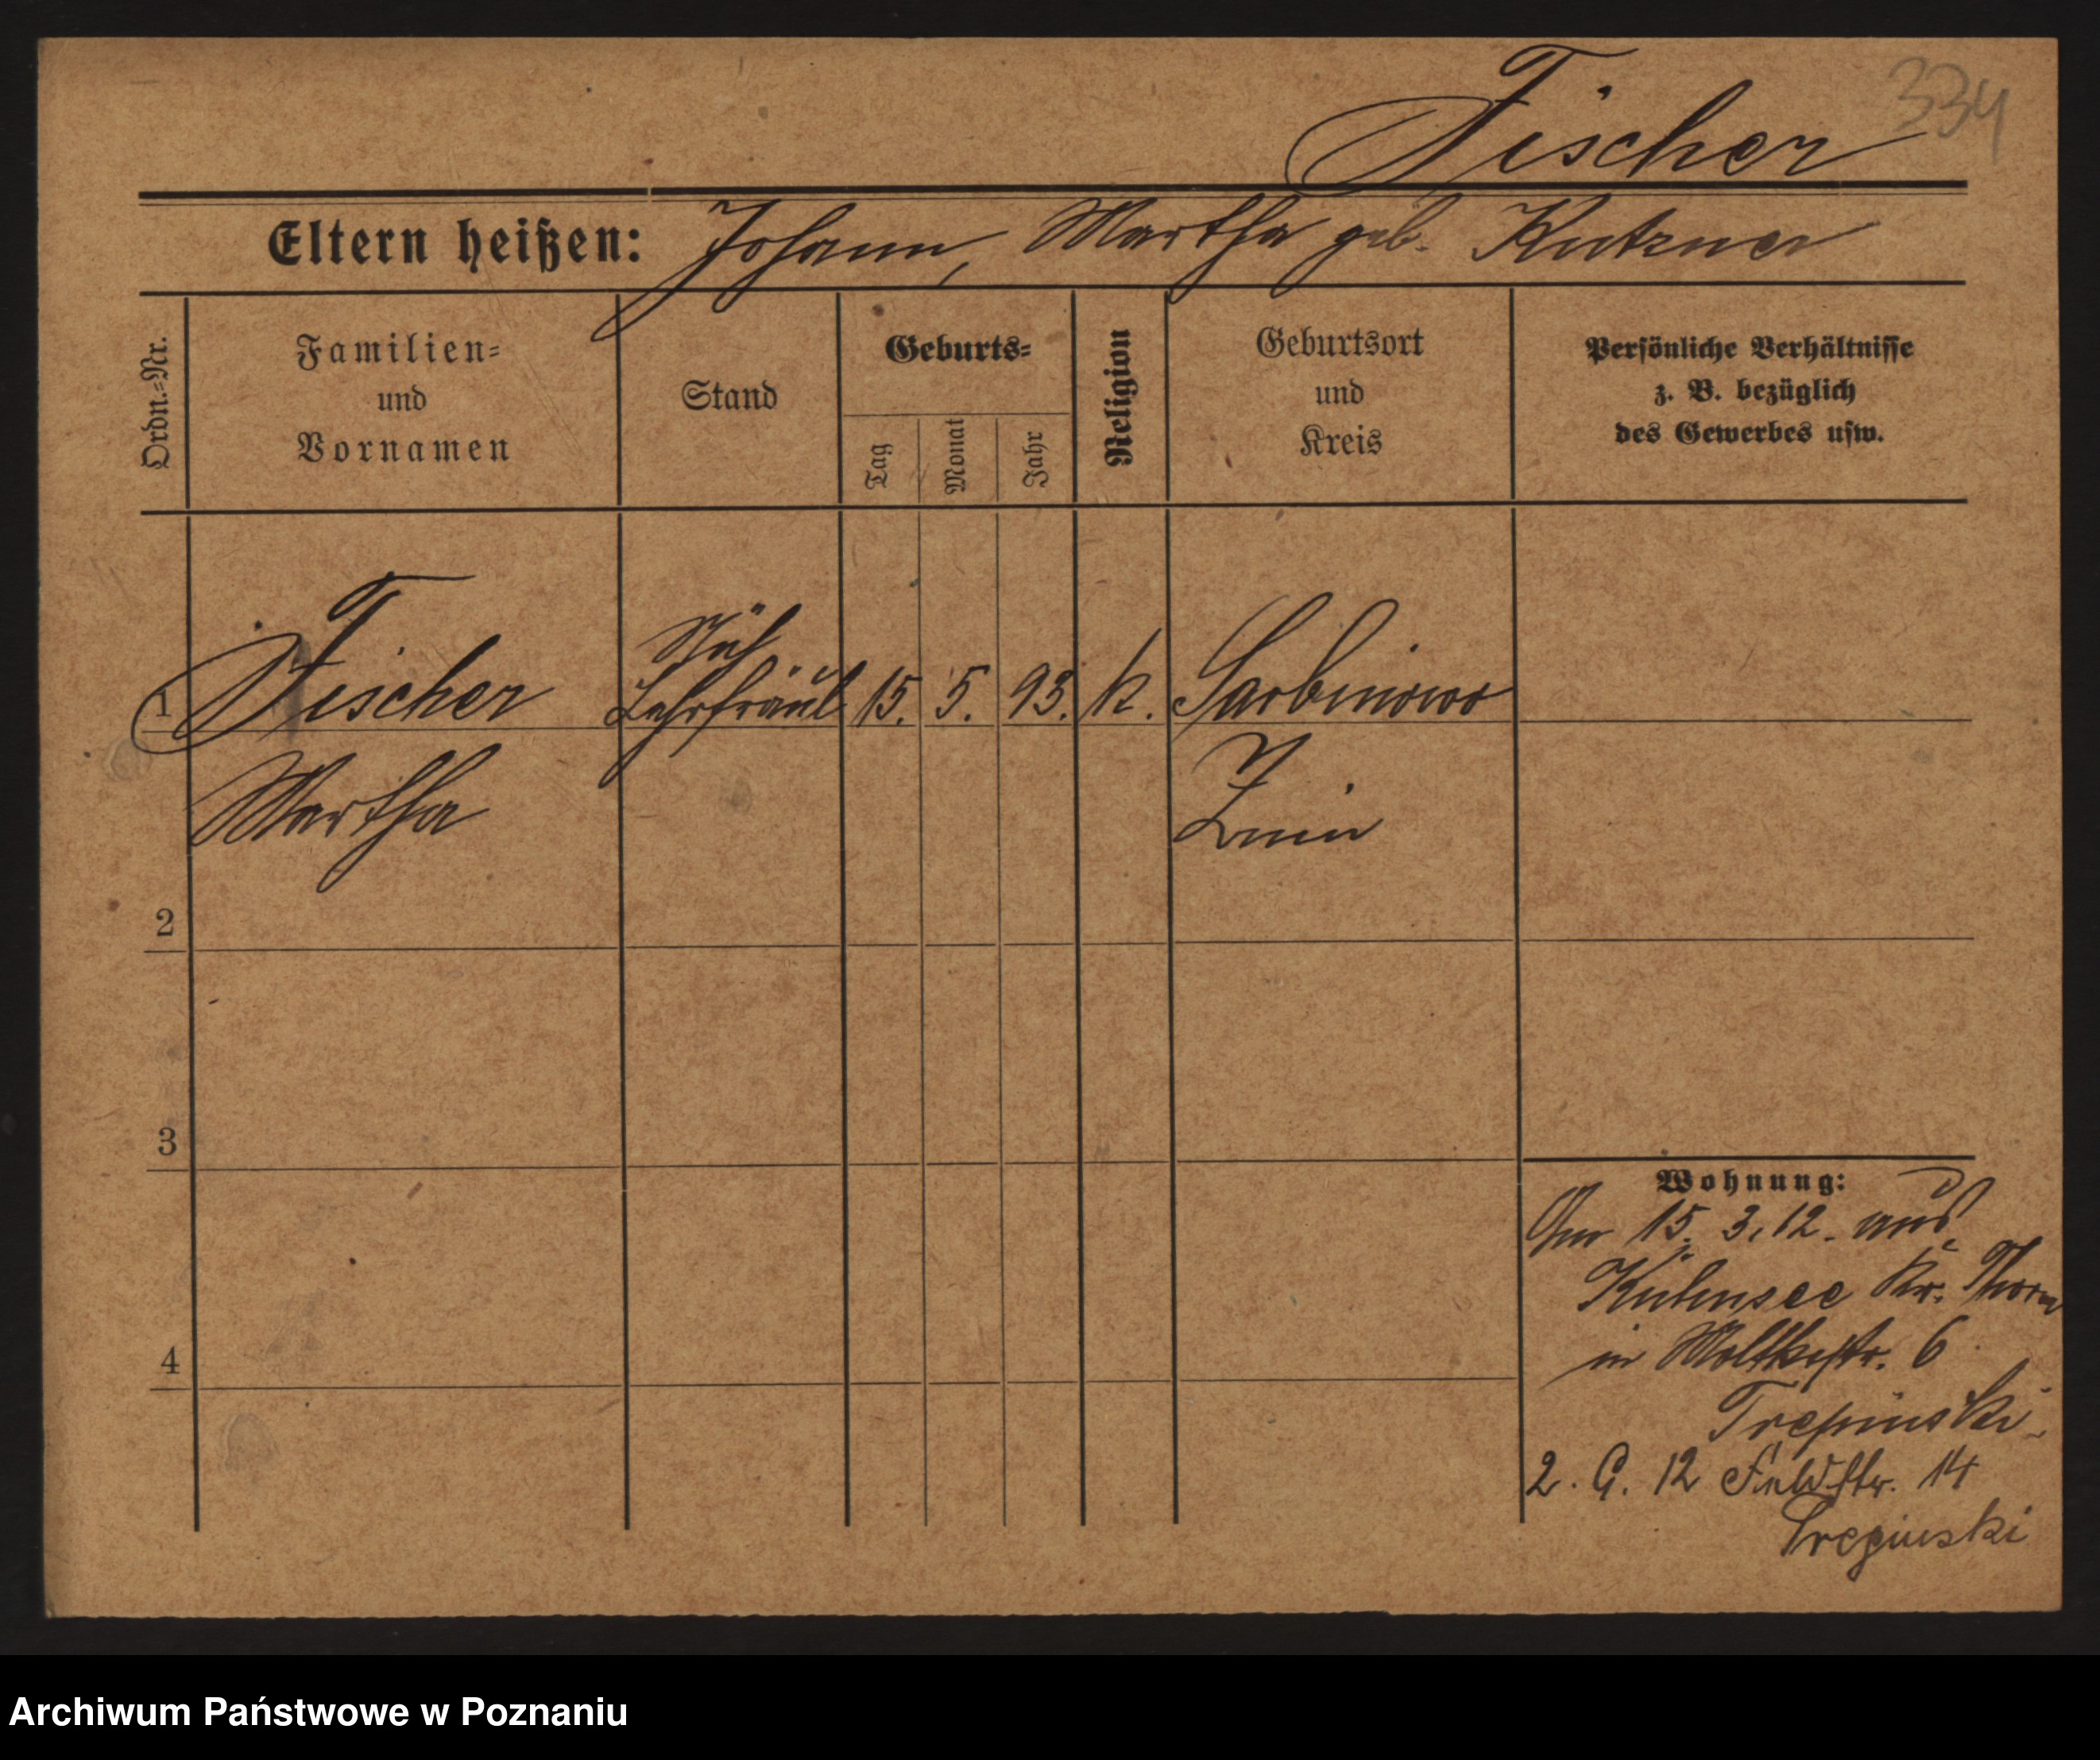 334
Fischer
Eltern heißen: Johann, Martha geb. Kutzner
Ordn.=Nr.
Familien=
und
Vornamen
Stand
Geburts=
Tag
Monat
Jahr
Religion
Geburtsort
und
Kreis
Persönliche Verhältnisse
z. B. bezüglich
des Gewerbes usw.
Näh
1 Fischer Lehrfräul 15. 5. 93. k. Sarbinowo
Martha Znin
2
3
4
Wohnung:
15. 3. 12. aus
Kr. Thorn
in Moltkestr. 6
Trepinski
2. 9. 12 Feldstr. 14
Archiwum Państwowe w Poznaniu